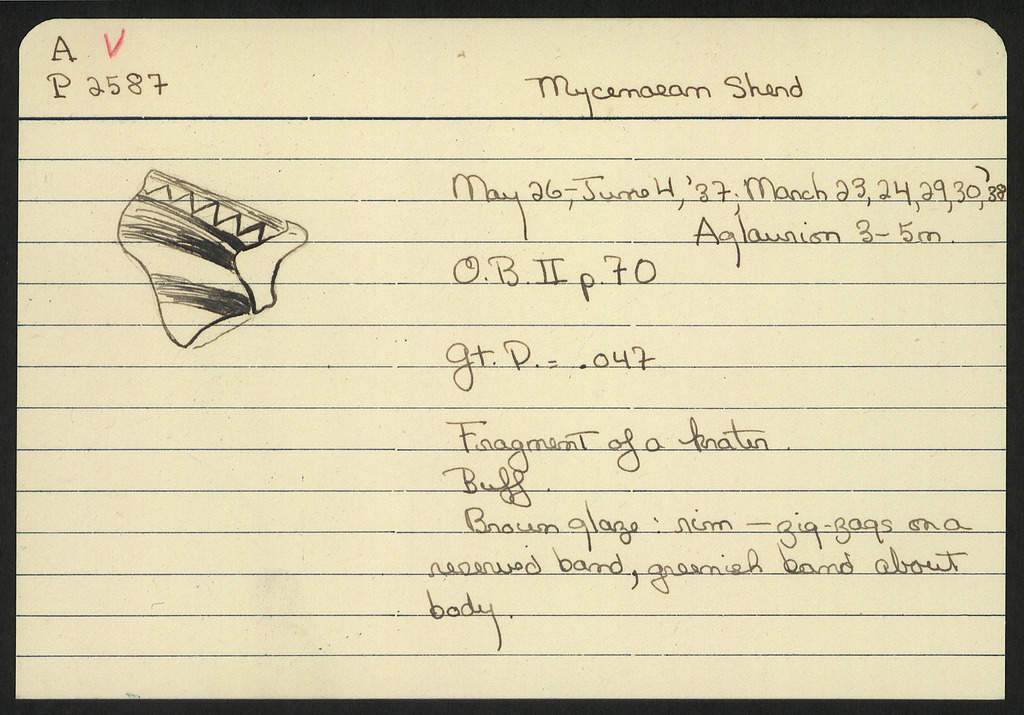 A V
P 2587
Mycenaean Sherd
May 26-June 4, '37; March 23, 24, 29, 30, '38
Aglaurion 3-5m.
O.B. II p. 70
gt. D. = .047
Fragment of a krater.
Buff.
Brown glaze: rim — zig-zags on a
reserved band, greenish band about
body.